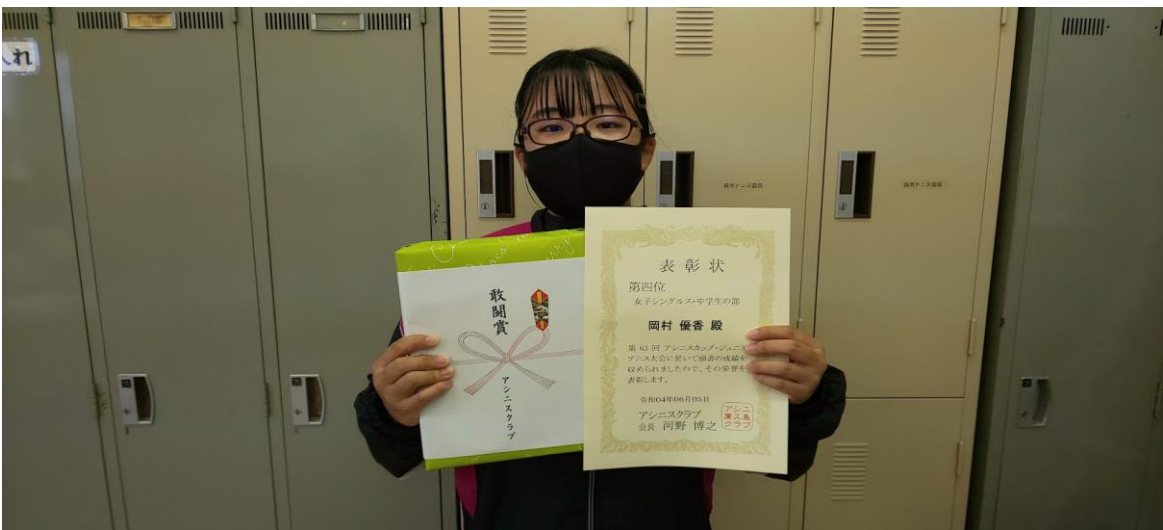 入れ
敢闘賞
アシニスクラブ
表彰状
第四位
女子シングルス・中学生の部
岡村 優香 殿
第 63 回 アシニスカップ・ジュニア
テニス大会に於いて頭書の成績を
収められましたので、その栄誉を
表彰します。
令和04年06月05日
アシニスクラブ
会長 河野 博之
アシニ
スクラブ